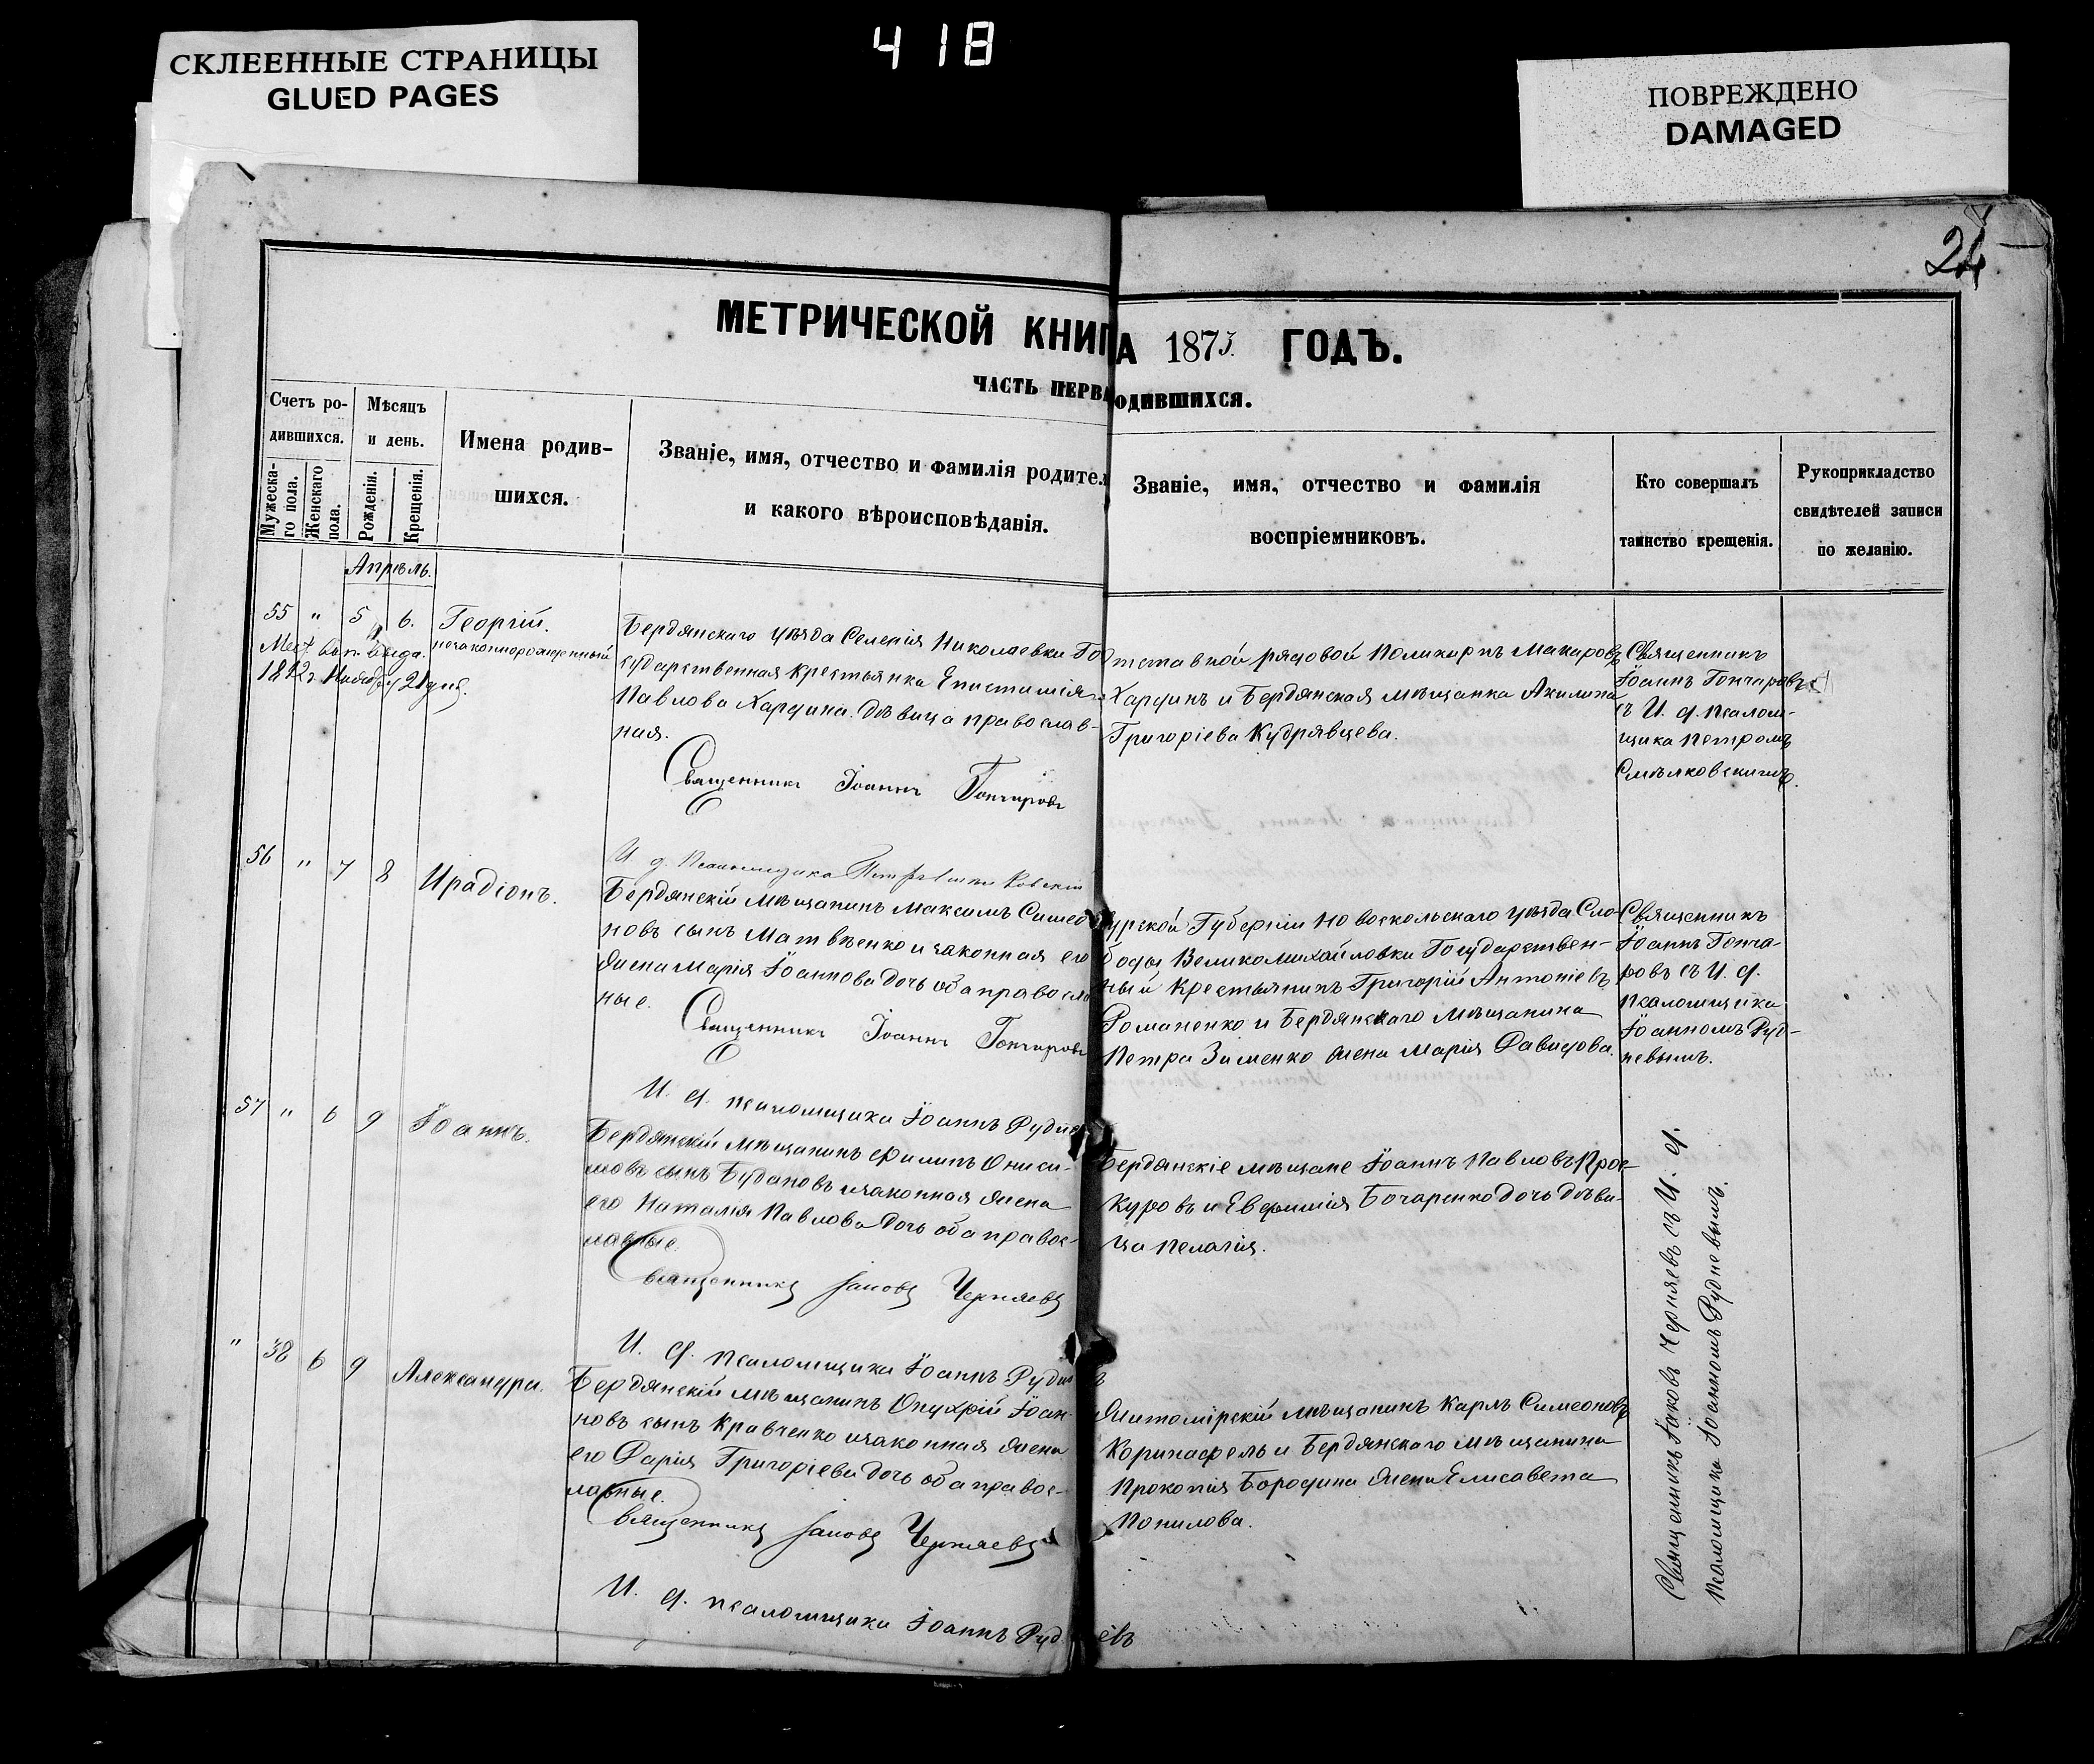 СКЛЕЕННЫЕ СТРАНИЦЫ
GLUED PAGES
418
ПОВРЕЖДЕНО
DAMAGED
24
МЕТРИЧЕСКОЙ КНИГ
А 1873 ГОДЪ.
ЧАСТЬ ПЕРВА
ОДИВШИХСЯ.
Счетъ ро-
дившихся.
Мужеска-
го пола.
Женскаго
пола.
Мѣсяцъ
и день.
Рожденія.
Крещенія.
Имена родив-
шихся.
Званіе, имя, отчество и фамилія родител
и какого вѣроисповѣданія.
Званіе, имя, отчество и фамилія
воспріемниковъ.
Кто совершалъ
таинство крещенія.
Рукоприкладство
свидѣтелей записи
по желанію.
Апрѣль.
55 " 5 6. Георгій.
незаконнорожденный
Бердянскаго уѣзда Селенія Николаевки Го
сударственная крестьянка Епистимія
Павлова Хардина. дѣвица православ-
ная.
Священникъ Іоаннъ Гончаровъ
И. д. Псаломщика Петръ
тставной рядовой Поликарпъ Макаровъ
Хардинъ и Бердянская мѣщанка Акилина
Григоріева Кудрявцева.
Священникъ
Іоаннъ Гончаровъ
съ И. д. псалом-
щика Петромъ
56 " 7 8 Иродіонъ.
Бердянскій мѣщанинъ Максимъ Симео
новъ сынъ Матвѣенко и законная его
жена Марія Іоаннова дочь оба правосла
ные.
Священникъ Іоаннъ Гончаровъ
И. д. псаломщика Іоаннъ Рудне
урской Губерніи Новооскольскаго уѣзда Сло-
боды Великомихайловки Государствен-
ный крестьянинъ Григорій Антоніевъ
Романенко и Бердянскаго мѣщанина
Петра Зименко жена Марія Давидова.
Священникъ
Іоаннъ Гонча-
ровъ съ И. д.
псаломщика
Іоанномъ Руд-
невымъ.
57 " 6 9 Іоаннъ.
Бердянскій мѣщанинъ Филипъ Ониси-
мовъ сынъ Будановъ и законная жена
его Наталія Павлова дочь оба правос-
лавные.
Священникъ Іаковъ Черняевъ
И. д. псаломщика Іоаннъ Рудне
Бердянскіе мѣщане Іоаннъ Павловъ Прос-
куровъ и Евфимія Бочаренко дочь дѣви-
ца Пелагія.
" 38 6 9 Александра.
Бердянскій мѣщанинъ Онуфрій Іоан-
новъ сынъ Кравченко и законная жена
его Дарія Григоріева дочь оба правос-
лавные.
Священникъ Іаковъ Черняевъ
И. д. псаломщика Іоаннъ Руд
евъ
Житомірскій мѣщанинъ Карлъ Симеоновъ
и Бердянскаго мѣщанина
Прокопія Бородина жена Елисавета
Священникъ Іаковъ Черняевъ съ И. д.
псаломщика Іоанномъ Рудневымъ.